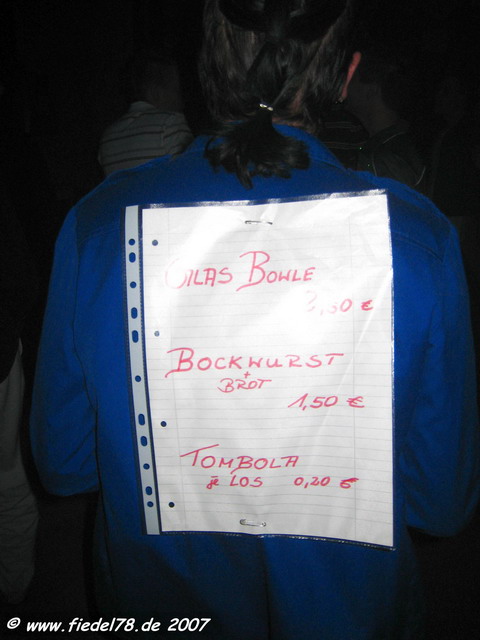 GLAS BOWLE
,50 €
BOCKWURST
+
BROT
1,50 €
TOMBOLA
je LOS 0,20 €
© www.fiedel78.de 2007